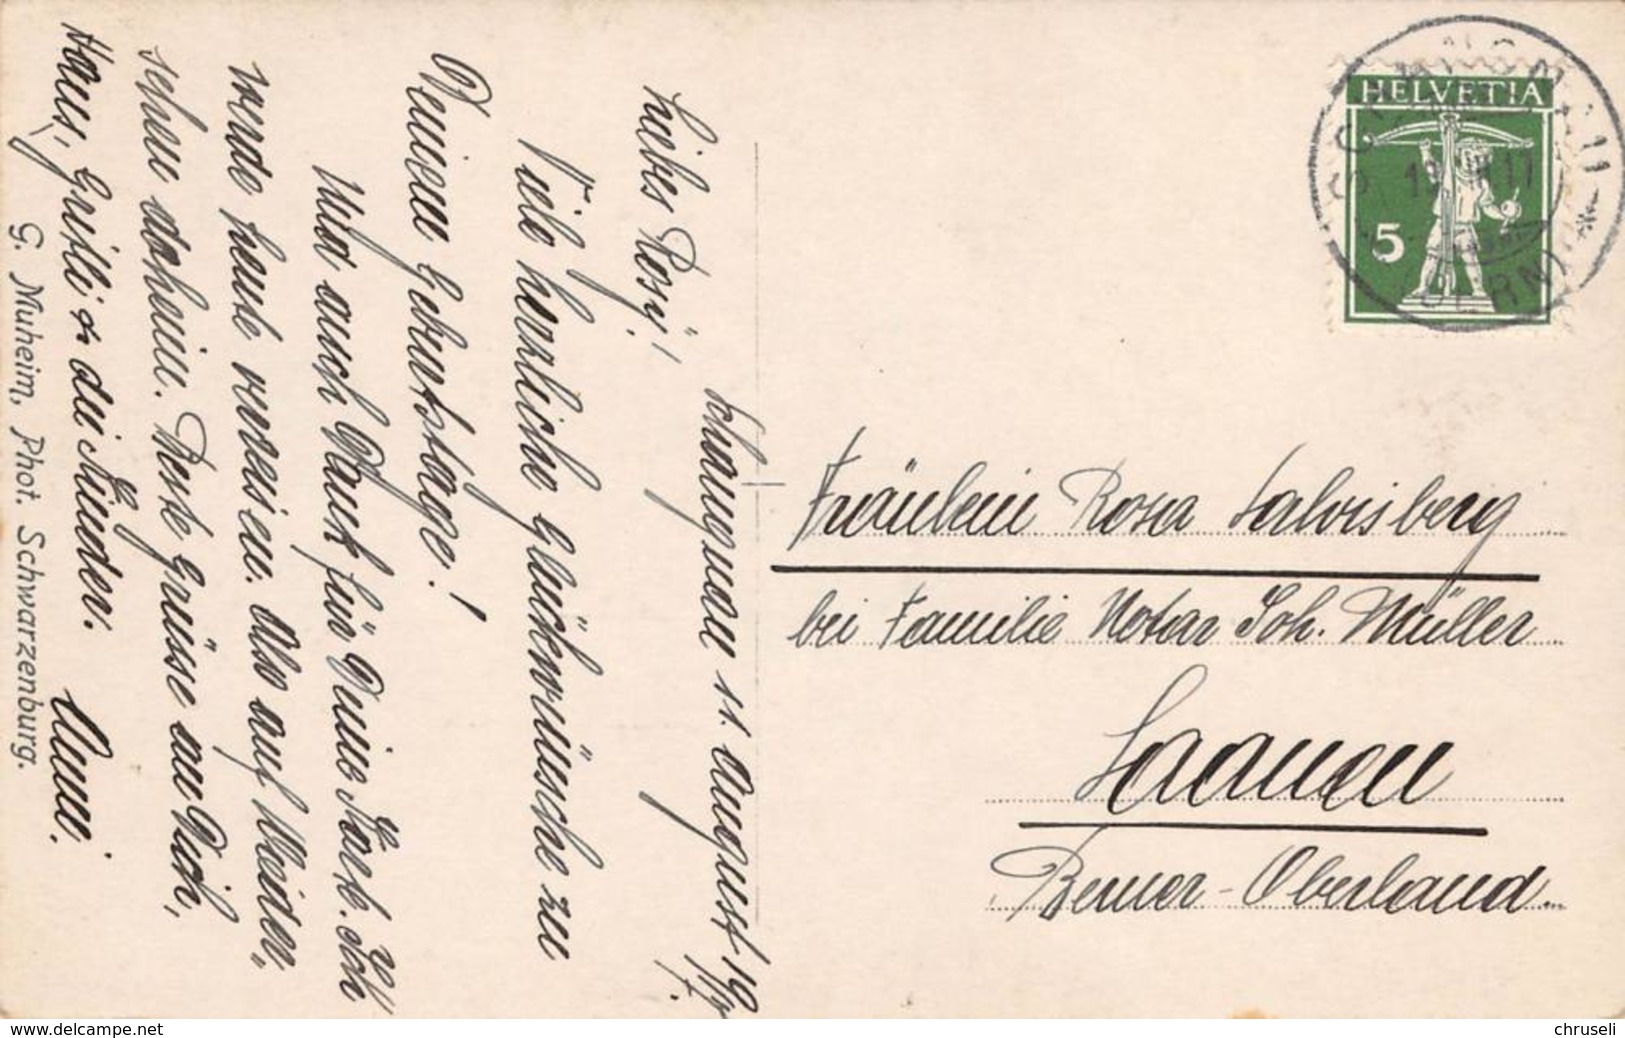 Schangnau 11. August 1917.
Liebes Rosy!
Viele herzliche Glückwünsche zu
Deinem Geburtstage!
Und auch Dank für Deine Karte. Ich
werde heute verreisen. Also auf Wieder-
sehen daheim. Beste Grüsse an Dich,
Haus, Gritli & die Kinder.
G. Muheim, Phot. Schwarzenburg.
HELVETIA
5
SCHANGNAU
(BERN)
Fräulein Rosa Salvisberg
bei Familie Notar Joh. Müller
Saanen
Berner-Oberland.
www.delcampe.net
chruseli